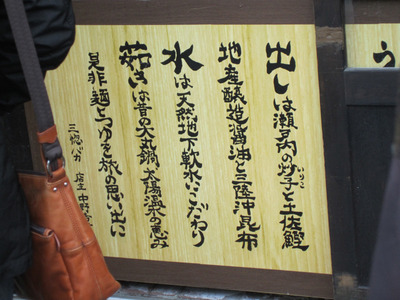 出しは瀬戸内の炒子と土佐鰹
いりこ
地産醸造醤油と三陸沖昆布
水は天然地下軟水にこだわり
茹きは昔の大丸鍋、太陽温水の恵み
是非麺とつゆを旅の思い出に
店主 中野
う